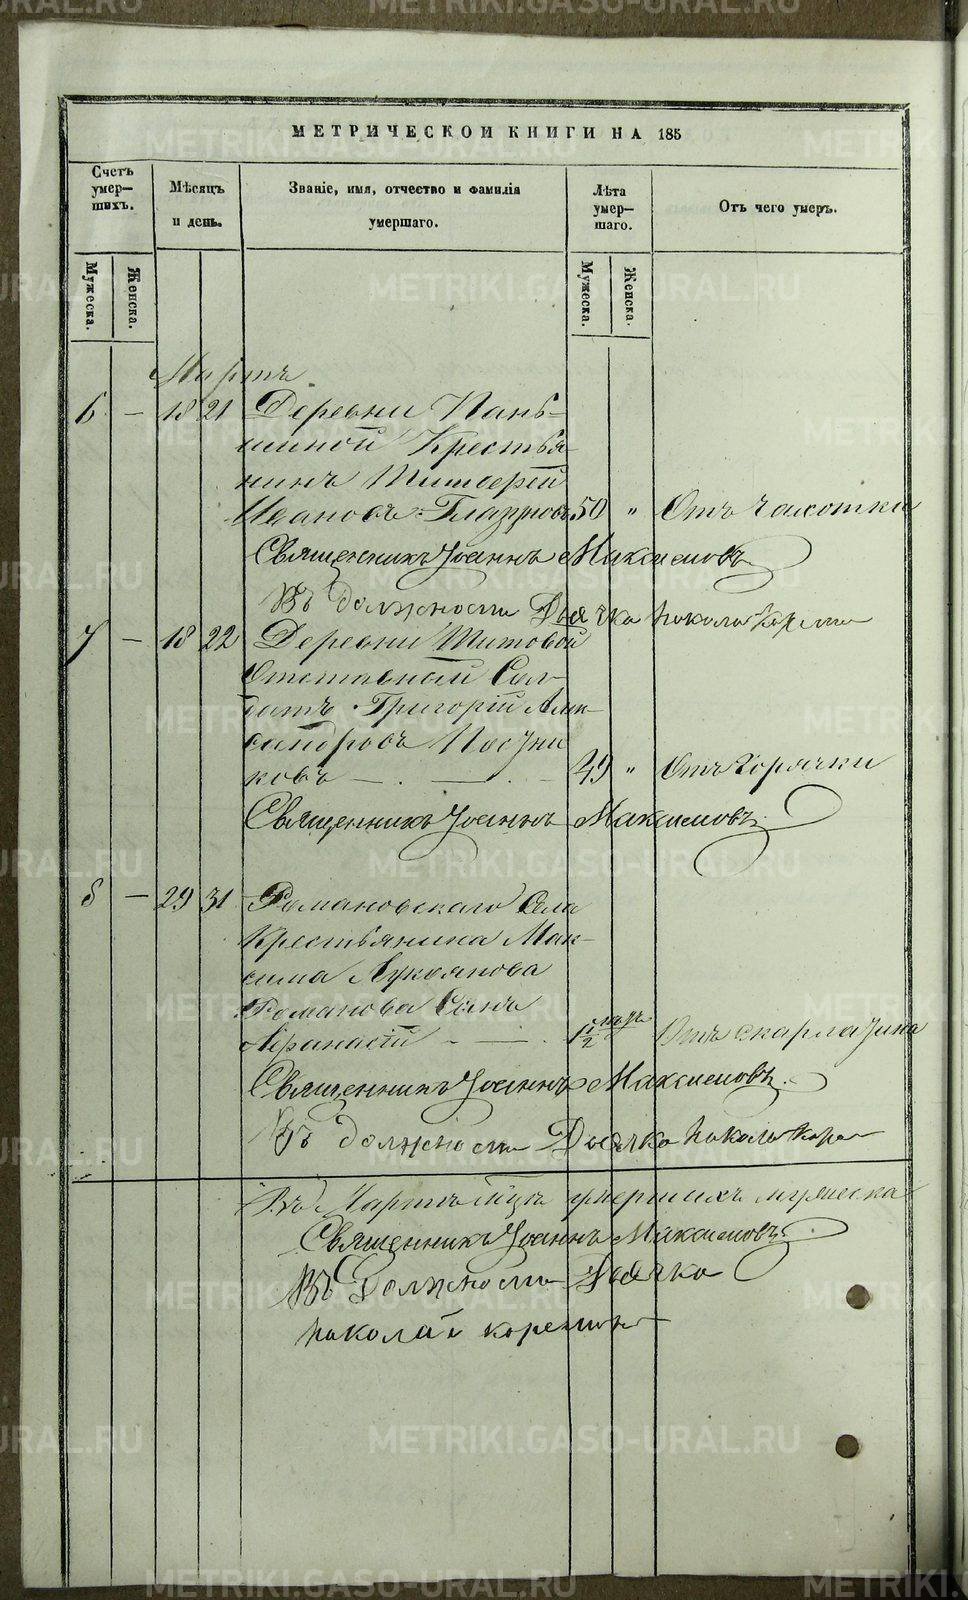 МЕТРИЧЕСКОЙ КНИГИ НА 185
Счетъ умер-шихъ.
Мѣсяцъ и день.
Званіе, имя, отчество и фамилія умершаго.
Лѣта умер-шаго.
Отъ чего умеръ.
Мужеска.
Женска.
Мужеска.
Женска.
Мартъ
6 – 18 21 Деревни Пань-
шиной Крестья-
нинъ Тимоѳей
Ивановъ 50 " Отъ чахотки
Священникъ Іоаннъ Максимовъ
Въ должности Дьячка
7 – 18 22 Деревни Титовой
Отставный Сол-
датъ Григорій Алек-
сандровъ Посни-
ковъ — . — . — 49 " Отъ Горячки
Священникъ Іоаннъ Максимовъ
8 – 29 31 Романовскаго Села
Крестьянина Мак-
сима Лукоянова
Романова Сынъ
Аѳанасій - . — . 1 1/2 Отъ скарлатина
Священникъ Іоаннъ Максимовъ
Въ должности Дьячка
Въ Мартѣ м-цѣ умершихъ мужеска
Священникъ Іоаннъ Максимовъ
Въ Должности Дьячка
Николай
METRIKI.GASO-URAL.RU